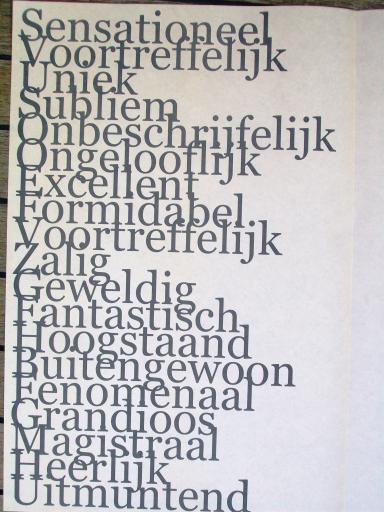 Sensationeel
Voortreffelijk
Uniek
Subliem
Onbeschrijfelijk
Ongelooflijk
Excellent
Formidabel
Voortreffelijk
Zalig
Geweldig
Fantastisch
Hoogstaand
Buitengewoon
Fenomenaal
Grandioos
Magistraal
Heerlijk
Uitmuntend